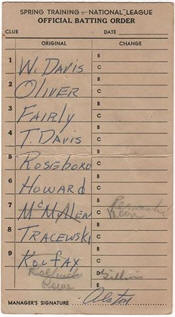 SPRING TRAINING - NATIONAL LEAGUE
OFFICIAL BATTING ORDER
CLUB DATE
ORIGINAL CHANGE
1 W. DAVIS B C
2 OLIVER B C
3 FAIRLY B C
4 T. DAVIS B C
5 ROSEBORO B C
6 HOWARD B C
7 McMULLEN B C
8 TRACEWSKI B C
9 KOUFAX B C
D
E
MANAGER'S SIGNATURE Alston